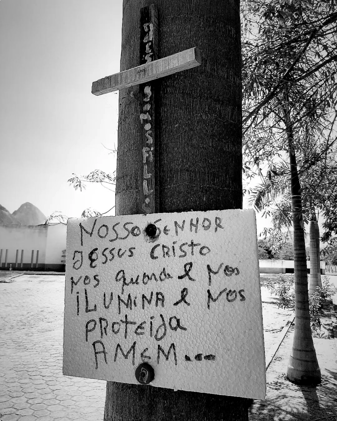 NOSSO SENHOR
JESSUS CRISTO
NOS guarda e NOS
iLUMiNA e NOS
PROTEiJA
AMEM....